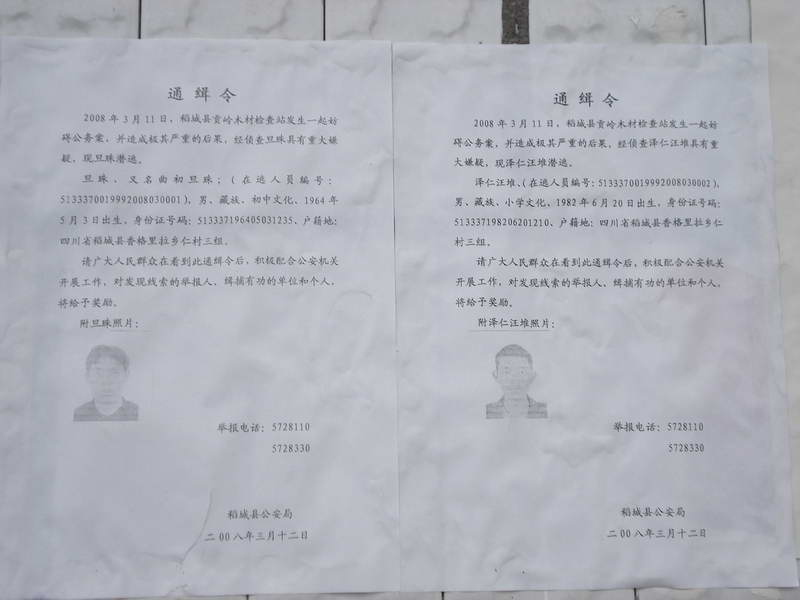 通缉令
2008年3月11日，稻城县贡岭木材检查站发生一起妨
碍公务案，并造成极其严重的后果，经侦查旦珠具有重大嫌
疑，现旦珠潜逃。
旦珠、又名曲初旦珠；（在逃人员编号：
5133370019992008030001）、男、藏族、初中文化、1964年
5月3日出生、身份证号码：513337196405031235、户籍地：
四川省稻城县香格里拉乡仁村三组。
请广大人民群众在看到此通缉令后，积极配合公安机关
开展工作，对发现线索的举报人、缉捕有功的单位和个人，
将给予奖励。
附旦珠照片：
举报电话：5728110
5728330
稻城县公安局
二00八年三月十二日
通缉令
2008年3月11日，稻城县贡岭木材检查站发生一起妨
碍公务案，并造成极其严重的后果，经侦查泽仁汪堆具有重
大嫌疑，现泽仁汪堆潜逃。
泽仁汪堆、（在逃人员编号：5133370019992008030002）、
男、藏族、小学文化、1982年6月20日出生、身份证号码：
513337198206201210、户籍地：四川省稻城县香格里拉乡仁
村三组。
请广大人民群众在看到此通缉令后，积极配合公安机关
开展工作，对发现线索的举报人、缉捕有功的单位和个人，
将给予奖励。
附泽仁汪堆照片：
举报电话：5728110
5728330
稻城县公安局
二00八年三月十二日